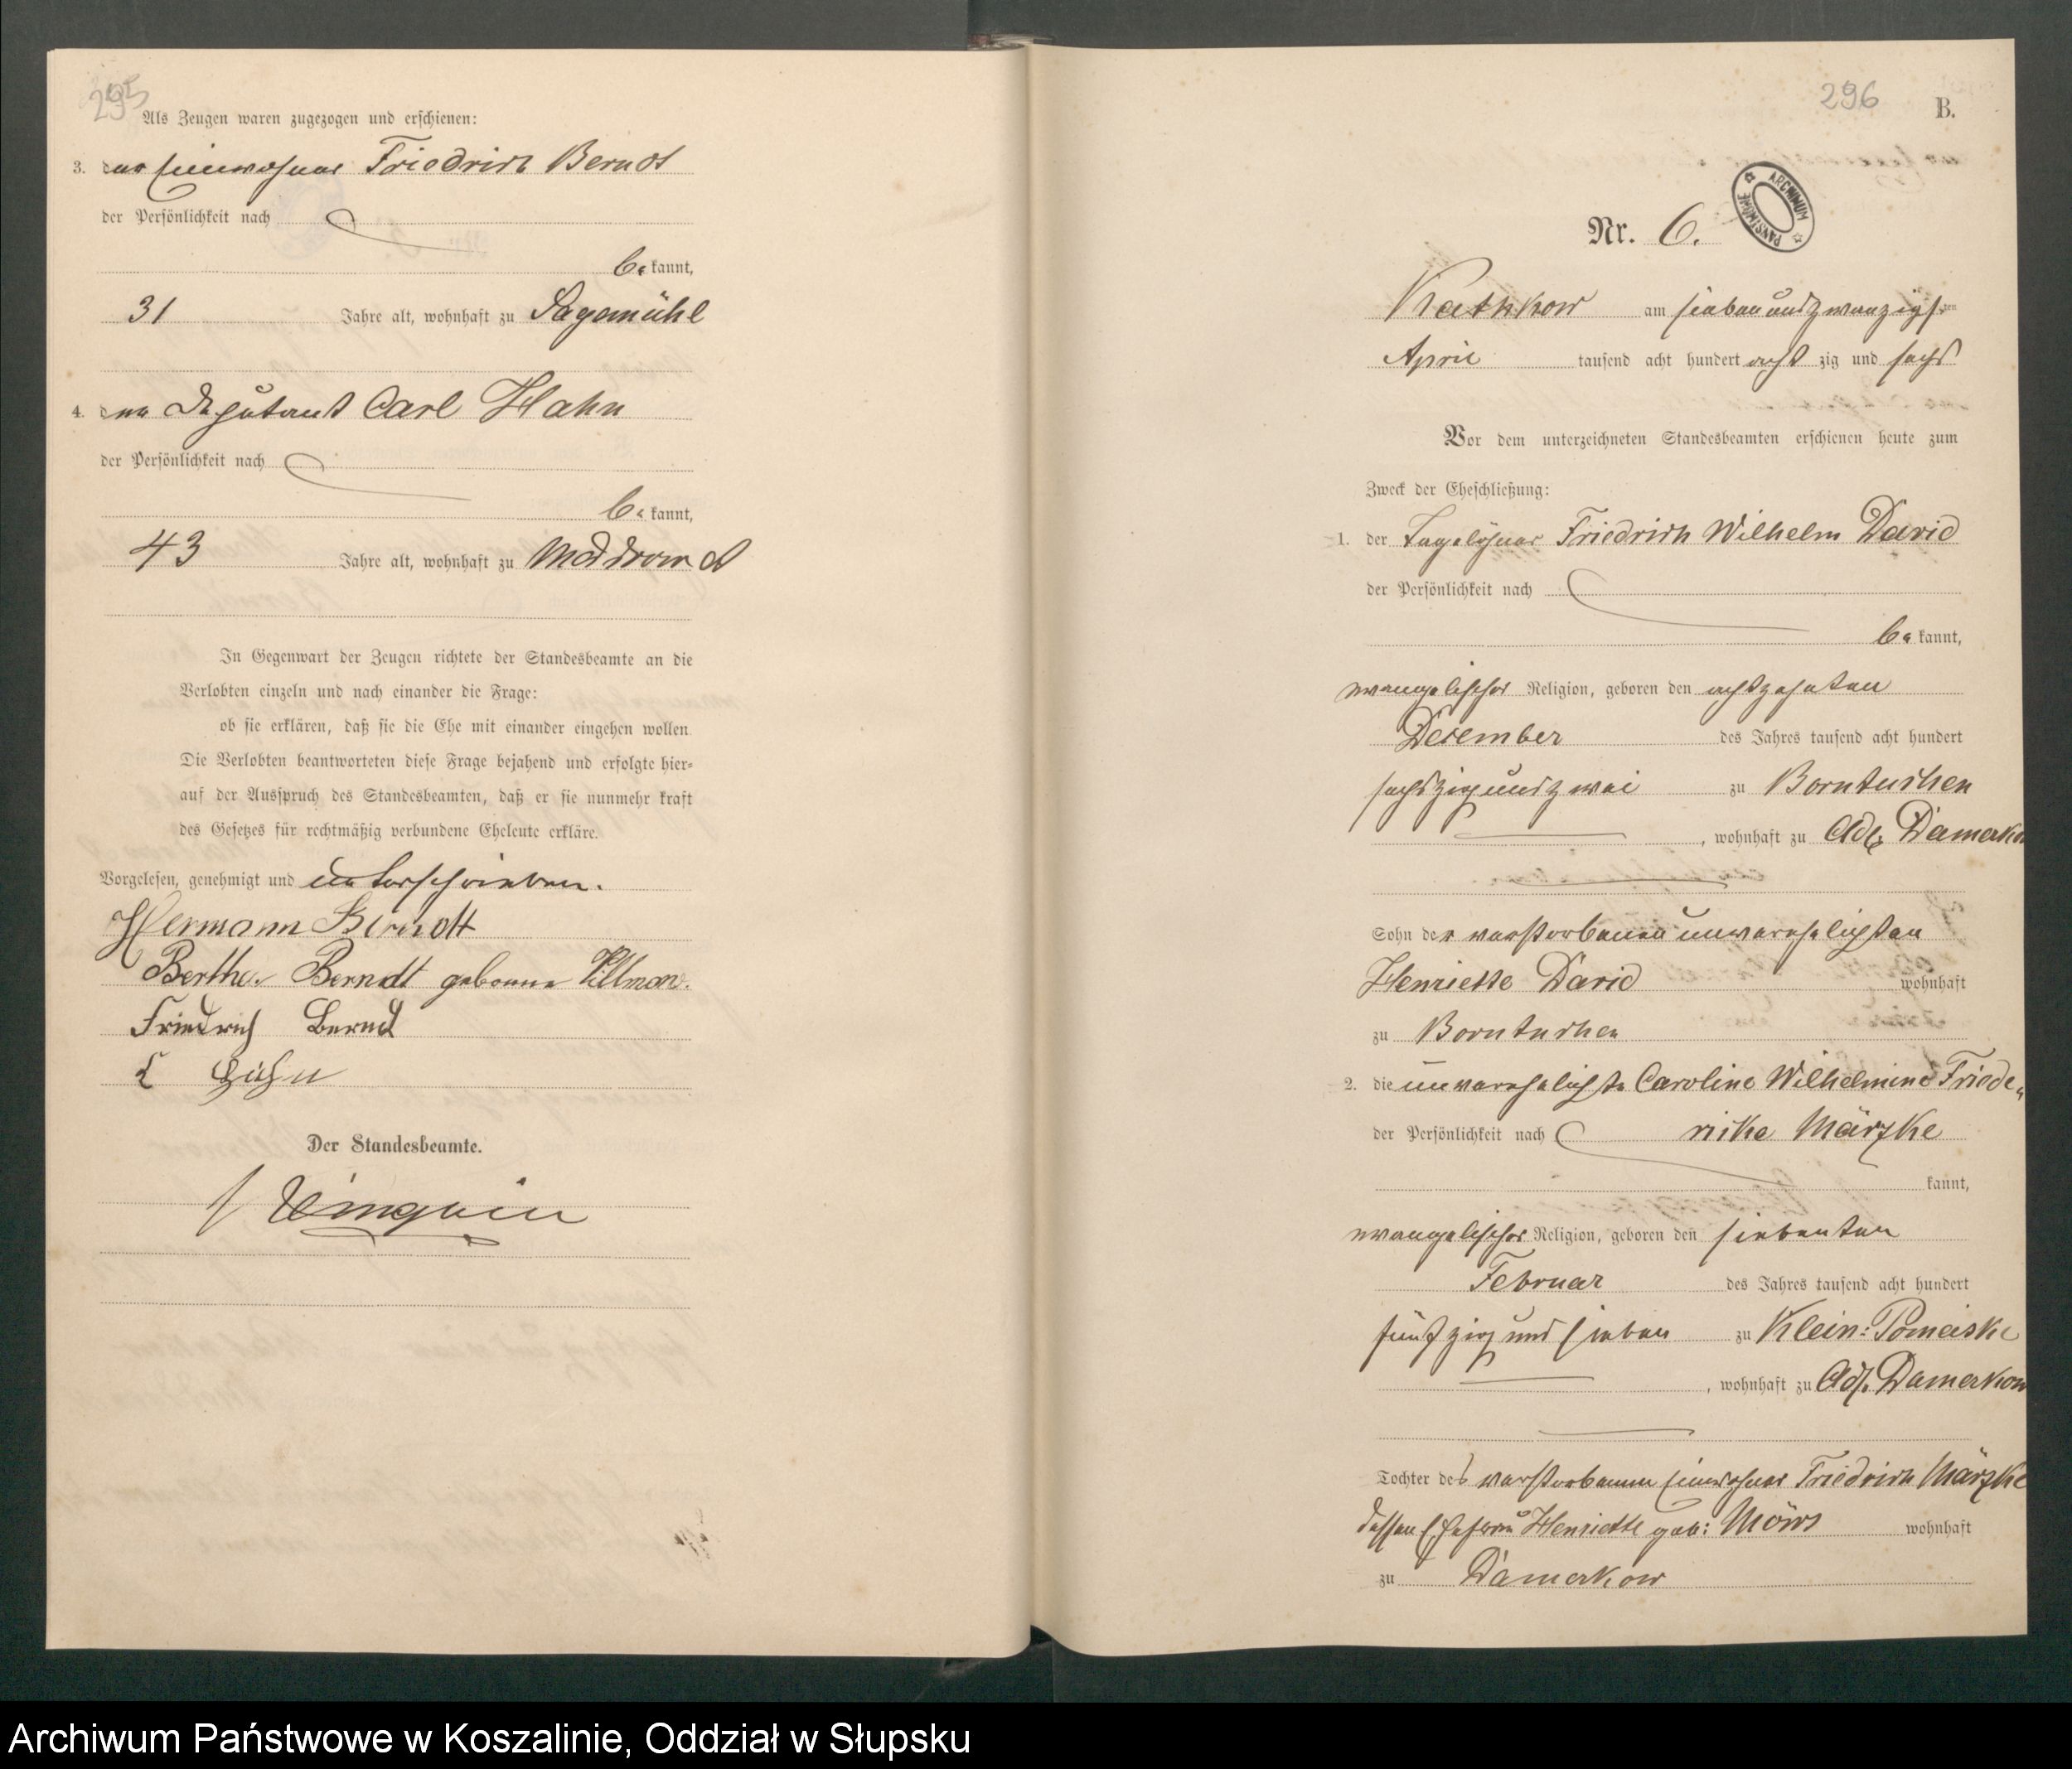 295
Als Zeugen waren zugezogen und erschienen:
3. der Einwohner Friedrich Berndt
der Persönlichkeit nach
be kannt,
31 Jahre alt, wohnhaft zu Sagemühl
4. der Deputant Carl Hahn
der Persönlichkeit nach
be kannt,
43 Jahre alt, wohnhaft zu
In Gegenwart der Zeugen richtete der Standesbeamte an die
Verlobten einzeln und nach einander die Frage:
ob sie erklären, daß sie die Ehe mit einander eingehen wollen
Die Verlobten beantworteten diese Frage bejahend und erfolgte hier-
auf der Ausspruch des Standesbeamten, daß er sie nunmehr kraft
des Gesetzes für rechtmäßig verbundene Eheleute erkläre.
Vorgelesen, genehmigt und unterschrieben.
Hermann Berndt
Bertha Berndt geborene
Friedrich Berndt
C Hahn
Der Standesbeamte.
296
B.
ARCHIWUM PAŃSTWOWE
Nr. 6.
Kathkow am siebenundzwanzigsten
April tausend acht hundert acht zig und sechs
Vor dem unterzeichneten Standesbeamten erschienen heute zum
Zweck der Eheschließung:
1. der Tagelöhner Friedrich Wilhelm David
der Persönlichkeit nach
be kannt,
evangelischer Religion, geboren den achtzehnten
Dezember des Jahres tausend acht hundert
sechszig und zwei zu Borntuchen
, wohnhaft zu Adl. Damerkow
Sohn der verstorbenen unverehelichten
Henriette David wohnhaft
zu Borntuchen
2. die unverehelichte Caroline Wilhelmine Friede-
der Persönlichkeit nach rike Märzke
kannt,
evangelischer Religion, geboren den siebenten
Februar des Jahres tausend acht hundert
fünfzig und sieben zu Klein: Pomeiske
, wohnhaft zu Adl. Damerkow
Tochter des verstorbenen Einwohner Friedrich Märzke
dessen Ehefrau Henriette geb: Möws wohnhaft
zu Damerkow
Archiwum Państwowe w Koszalinie, Oddział w Słupsku